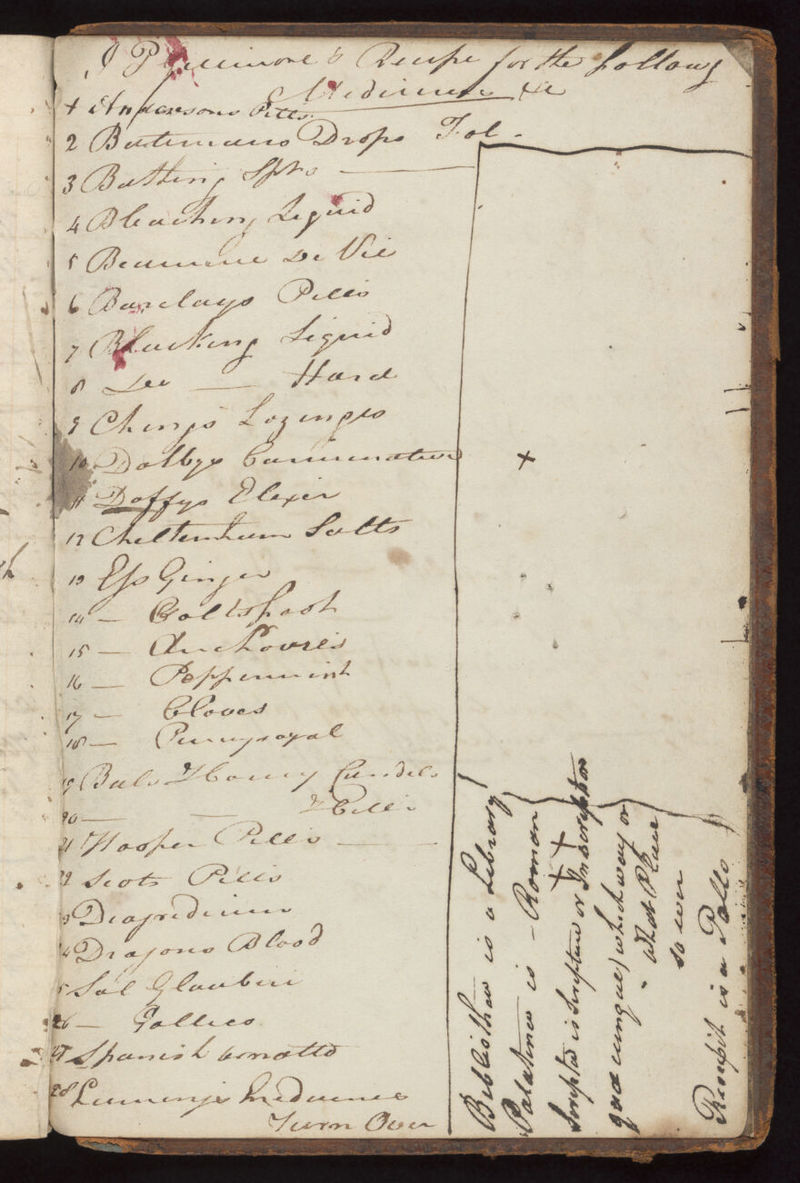 Recipe for the following
Medicines &c
+ Andersons Pills
2 Batemans Drops Fol.
3 Bathing Spts
4 Bleaching Liquid
5 Beaumme De Vie
6 Barclays Pills
7 Blacking Liquid
8 Do — Hard
9 Chings Lozenges
10 Dalbys Carminative +
11 Daffys Elixir
12 Cheltenham Salts
13 Ess Ginger
14 — Coltsfoot
15 — Anchovies
16 — Peppermint
17 — Cloves
18 — Pennyroyal
19 Bals Honey
20 — —
21 Hooper Pills
22 Scots Pills
23 Diagredium
24 Dragons Blood
25 Sal Glauberi
26 — Gallico
27 Spanish
28 Medicines
Turn Over
is a Library
Palatinus is - Roman
Scriptas is Scripture or Inscription
which way or
what Place
so ever
is a